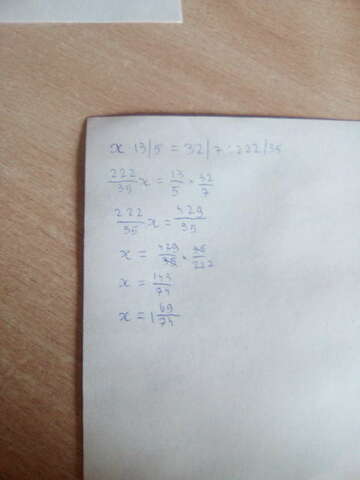 x 13/5 = 32/7 : 222/35
222/35 x = 13/5 · 32/7
222/35 x = 429/35
x = 429/35 · 35/222
x = 143/74
x = 1 69/74